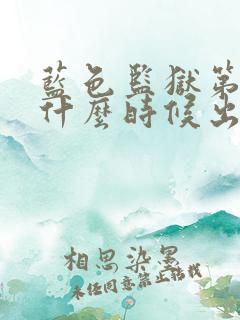 藍色監獄第
什麼時候出
相思染墨
未经同意禁止转载